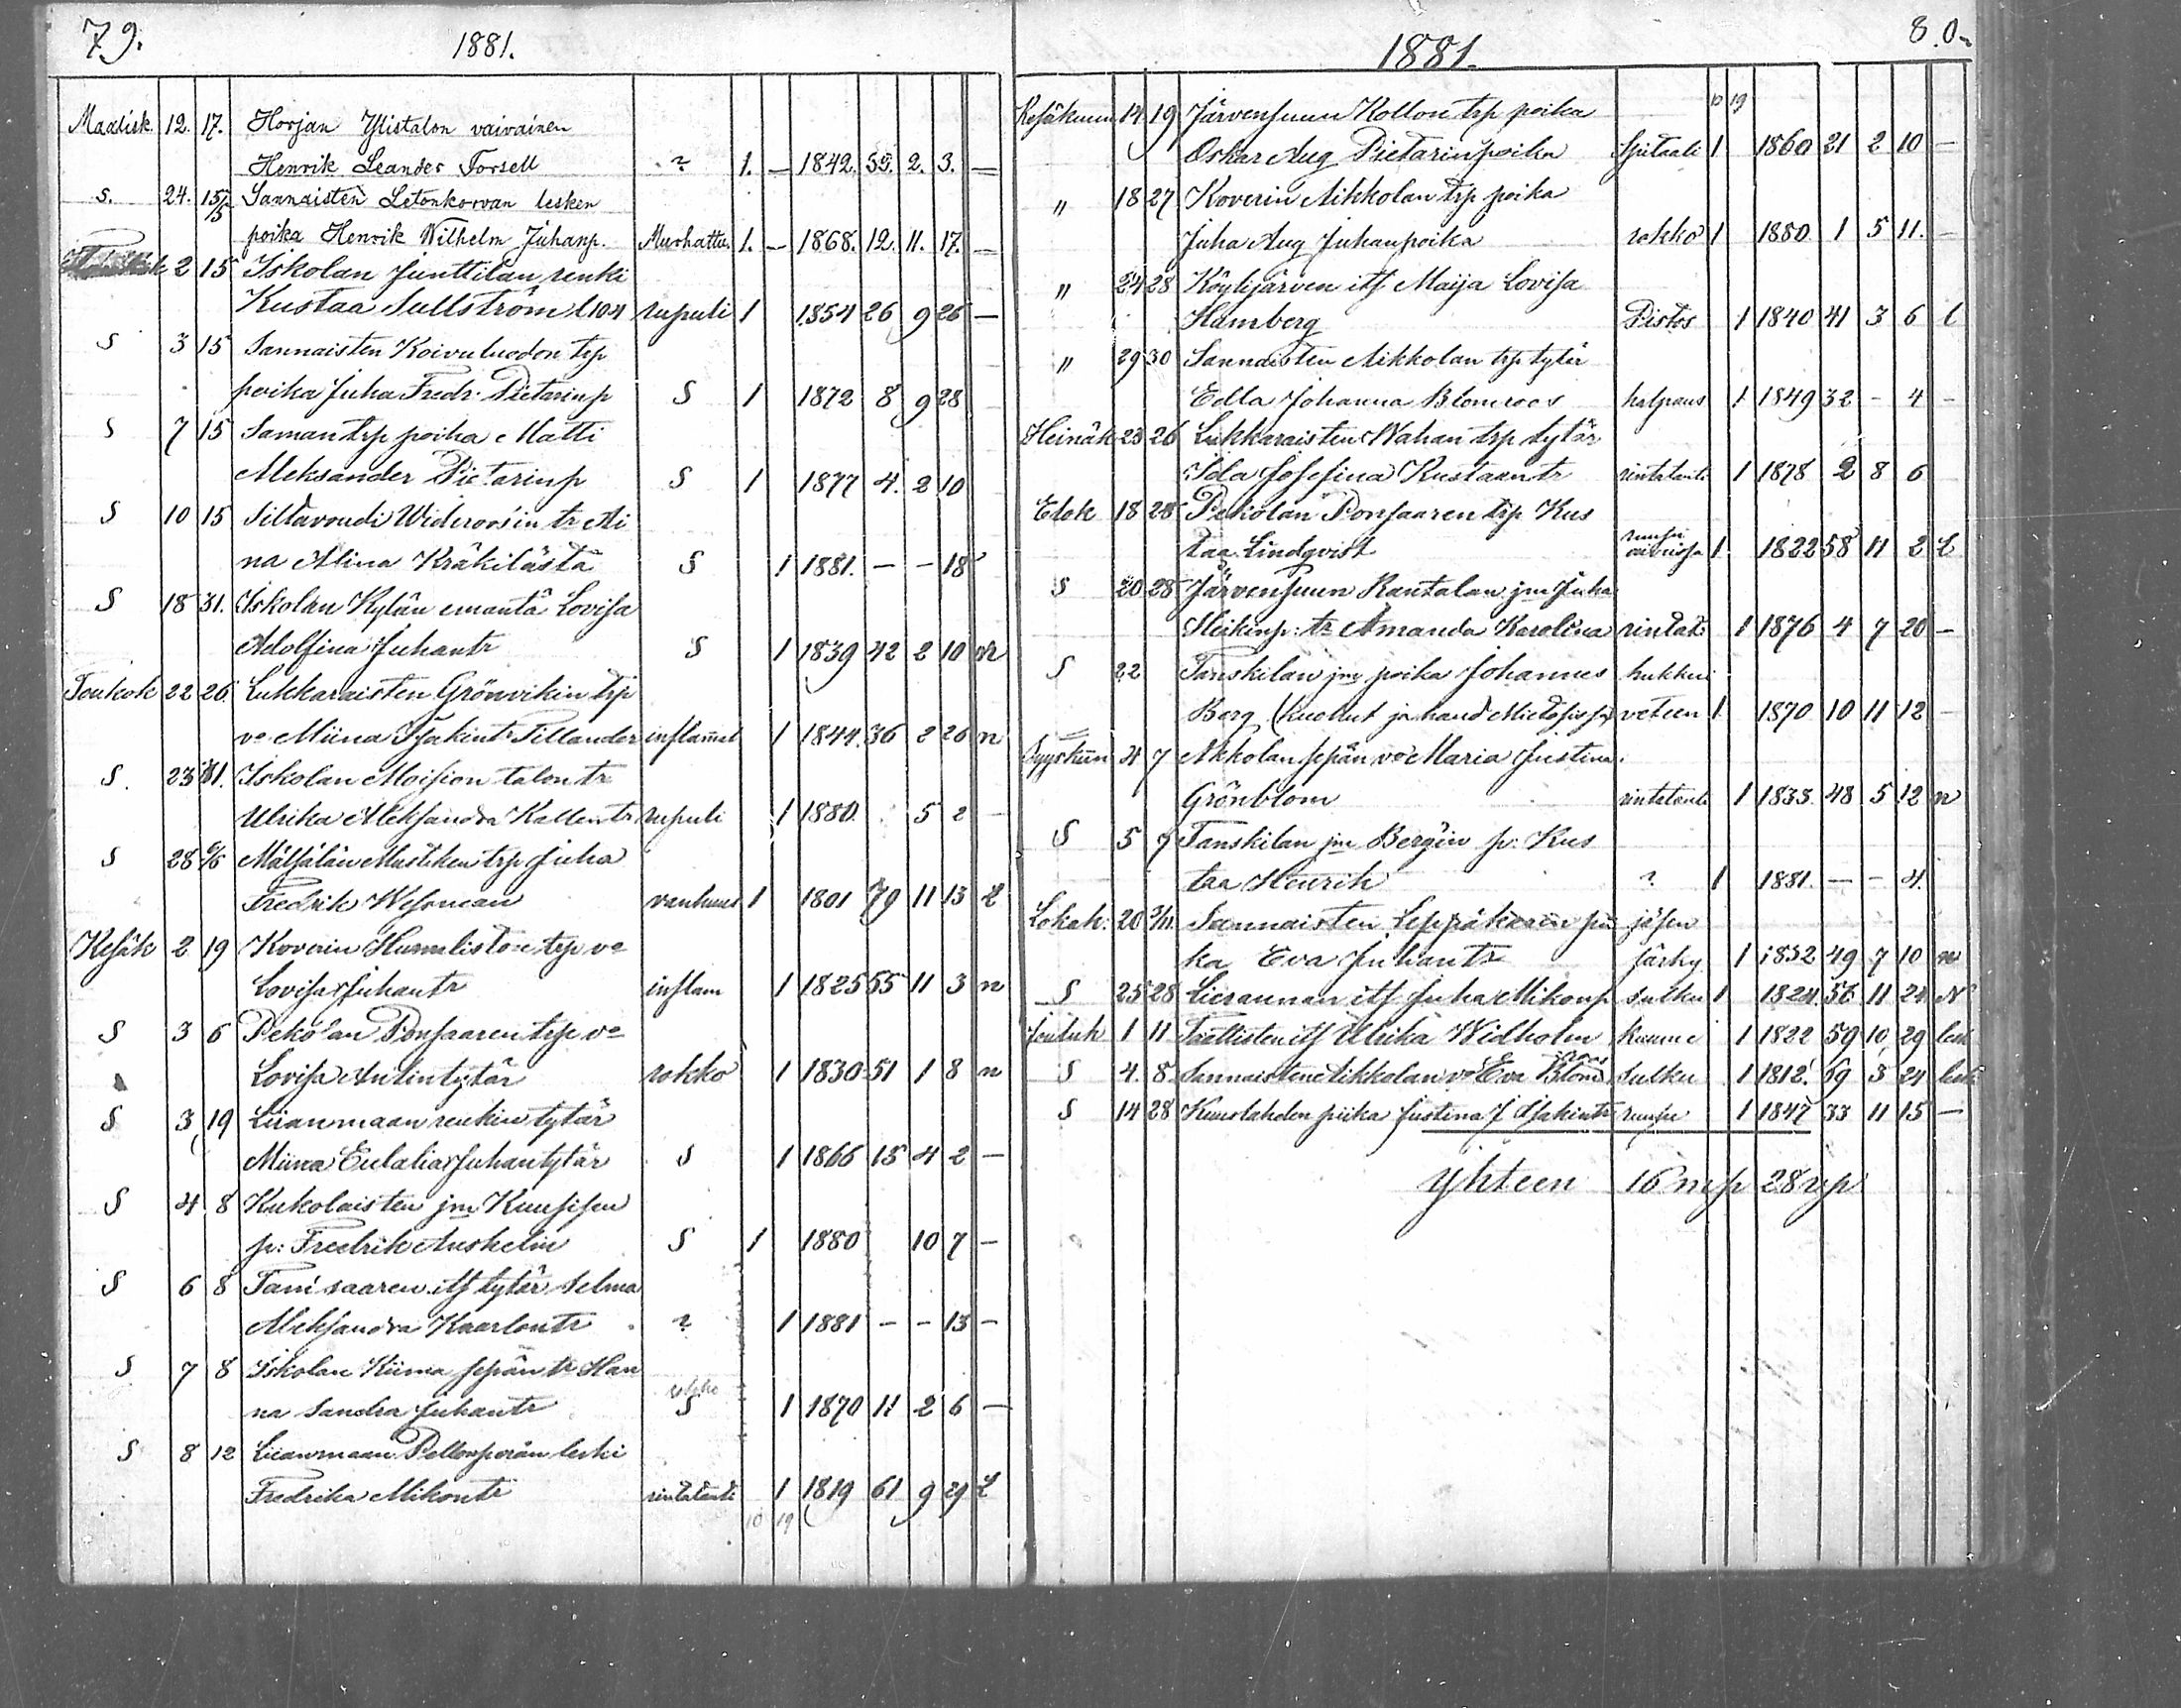 79.
1881.
Maalisk. 12. 17. Horjan Ylistalon vaivainen
Henrik Leander Forsell ? 1. — 1842. 39. 2. 3. —
S. 24. 15/5 Sannaisten Letonkorvan lesken
poika Henrik Wilhelm Juhanp. Murhattu. 1. — 1868. 12. 11. 17. —
2 15 Iskolan Junttilan renki
Kustaa Sullström rupuli 1 1854 26 9 26 —
S 3 15 Sannaisten Koivuluodon trp
poika Juha Fredr. Pietarinp S 1 1872 8 9 28
S 7 15 Saman trp poika Matti
Aleksander Pietarinp S 1 1877 4. 2 10
S 10 15 Siltavoudi Wideroos'in tr Ai
na Alina Kräkilästä S 1 1881. — — 18
S 18 31. Iskolan Kylän emäntä Lovisa
Adolfina Juhantr S 1 1839 42 2 10 n
Toukok 22 26. Lukkaraisten Grönvikin trp
vo Miina Isakintr Tillander inflamat 1 1844. 36 2 26 n
S. 23 31. Iskolan Moision talon tr
Ulrika Aleksandra Kallentr rupuli 1 1880. 5 2 —
S 28 6/6 Mältälän Mustiken trp Juha
Fredrik Wesman vanhuus 1 1801 79 11 13 L
Kesäk 2 19 Koverin Humaliston trp vo
Lovisa Juhantr inflam 1 1825 55 11 3 n
S 3 6 Pekolan Ponsaaren trp vo
Lovisa Antintytär rokko 1 1830 51 1 8 n
S 3 19 Liianmaan renkin tytär
Miina Eulalia Juhantytär S 1 1866 15 4 2 —
S 4 8 Kukolaisten jm Kuusisen
p: Fredrik Anshelm S 1 1880 10 7 —
S 6 8 Tanisaaren its tytär Selma
Aleksandra Kaarlontr ? 1 1881 — — 13 —
S 7 8 Iskolan Kiima sepän tr Han
na Sandra Juhantr S 1 1870 11 2 6 —
S 8 12 Liianmaan Pellonperän leski
Fredrika Mikontr rintatauti 1 1819 61 9 29 L
10 19
8.0.
1881.
10 19
Kesäkuun 14 19 Järvensuun Kollon trp poika
Oskar Aug Pietarinpoika Spitaali 1 1860 21 2 10 —
" 18 27 Koverin Mikkolan trp poika
Juha Aug Juhanpoika rokko 1 1880 1 5 11. —
" 24 28 Köylijärven its Maija Lovisa
Hamberg Pistos 1 1840 41 3 6 l
" 29 30 Sannaisten Mikkolan trp tytär
Edla Johanna Blomroos halpaus 1 1849 32 — 4 —
Heinäk 23 26 Lukkaraisten Wahan trp tytär
Ida Josefina Kustaantr rintatauti 1 1878 2 8 6
Elok 18 28 Pekolan Ponsaaren trp Kus
taa Lindqvist 1 1822 58 11 2 L
S 20 28 Järvensuun Rantalan jm Juha
Heikinp: tr Amanda Karolina rintat: 1 1876 4 7 20 —
S 22 Tanskilan jm poika Johannes hukkui
Berg veteen 1 1870 10 11 12 —
Syyskuun 4 7 Akkolan sepän vo Maria Justina
Grönblom rintatauti 1 1833 48 5 12 n
S 5 7 Tanskilan jm Bergin p: Kus
taa Henrik ? 1 1881. — — 4.
Lokak. 20 3/11. Sannaisten Leppäkarin pii jäsen
ka Eva Juhantr särky 1 1832 49 7 10 n
S 25 28 Liesaunan its Juha Mikonp sulku 1 1824. 56 11 24 N
Jouluk 1 11 Taattisten its Ulrika Widholm kuume 1 1822 59 10 29 lesk
S 4. 8. Sannaisten Mikkolan vo Eva Blomroos sulku 1 1812 69 3 24 lesk
S 14 28 Kuuslahden piika Justina J Isakintr 1 1847 33 11 15 —
yhteen 16 mp 28 vp